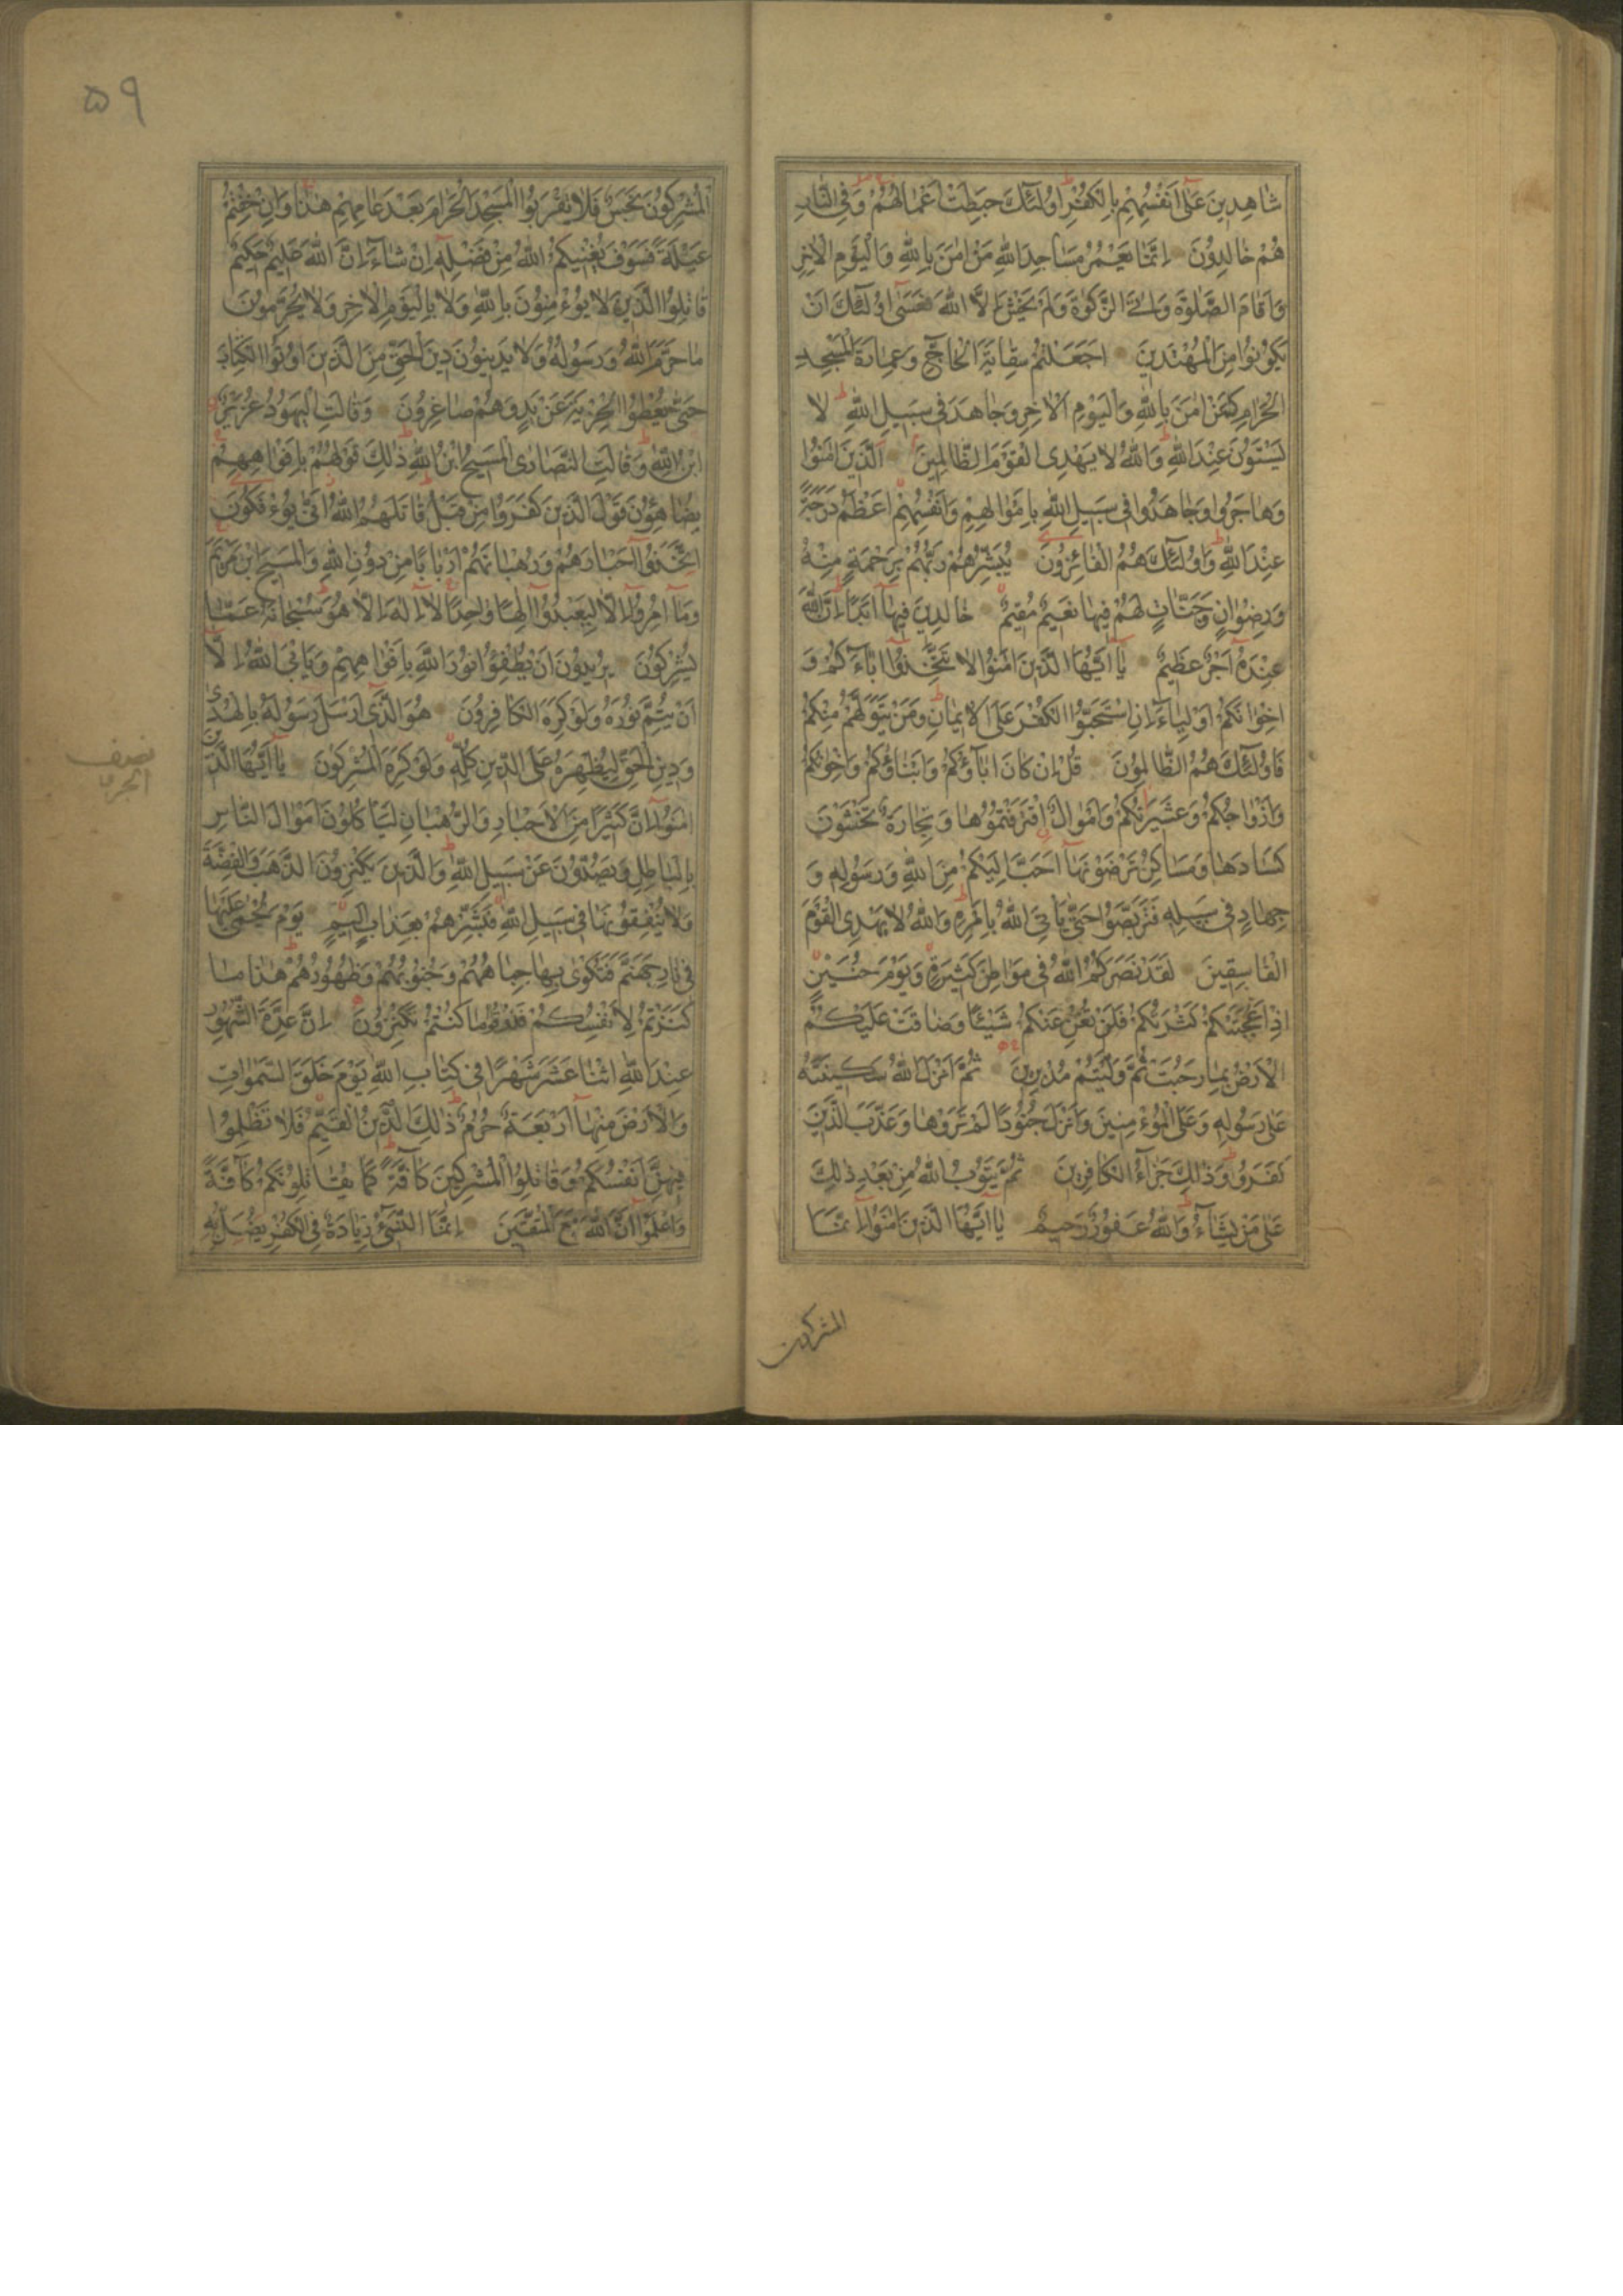 شَاهِدِينَ عَلَىٰ اَنْفُسِهِمْ بِالْكُفْرِ اُولٰئِكَ حَبِطَتْ اَعْمَالُهُمْ وَفِى النَّارِ
هُمْ خَالِدُونَ اِنَّمَا يَعْمُرُ مَسَاجِدَ اللّٰهِ مَنْ اٰمَنَ بِاللّٰهِ وَالْيَوْمِ الْاٰخِرِ
وَاَقَامَ الصَّلٰوةَ وَاٰتَى الزَّكٰوةَ وَلَمْ يَخْشَ اِلَّا اللّٰهَ فَعَسٰٓى اُولٰئِكَ اَنْ
يَكُونُوا مِنَ الْمُهْتَدِينَ اَجَعَلْتُمْ سِقَايَةَ الْحَاجِّ وَعِمَارَةَ الْمَسْجِدِ
الْحَرَامِ كَمَنْ اٰمَنَ بِاللّٰهِ وَالْيَوْمِ الْاٰخِرِ وَجَاهَدَ فِى سَبِيلِ اللّٰهِ لَا
يَسْتَوُنَ عِنْدَ اللّٰهِ وَاللّٰهُ لَا يَهْدِى الْقَوْمَ الظَّالِمِينَ اَلَّذِينَ اٰمَنُوا
وَهَاجَرُوا وَجَاهَدُوا فِى سَبِيلِ اللّٰهِ بِاَمْوَالِهِمْ وَاَنْفُسِهِمْ اَعْظَمُ دَرَجَةً
عِنْدَ اللّٰهِ وَاُولٰئِكَ هُمُ الْفَائِزُونَ يُبَشِّرُهُمْ رَبُّهُمْ بِرَحْمَةٍ مِنْهُ
وَرِضْوَانٍ وَجَنَّاتٍ لَهُمْ فِيهَا نَعِيمٌ مُقِيمٌ خَالِدِينَ فِيهَا اَبَدًا اِنَّ اللّٰهَ
عِنْدَهُ اَجْرٌ عَظِيمٌ يَا اَيُّهَا الَّذِينَ اٰمَنُوا لَا تَتَّخِذُوا اٰبَاءَكُمْ وَ
اِخْوَانَكُمْ اَوْلِيَاءَ اِنِ اسْتَحَبُّوا الْكُفْرَ عَلَى الْاِيمَانِ وَمَنْ يَتَوَلَّهُمْ مِنْكُمْ
فَاُولٰئِكَ هُمُ الظَّالِمُونَ قُلْ اِنْ كَانَ اٰبَاؤُكُمْ وَاَبْنَاؤُكُمْ وَاِخْوَانُكُمْ
وَاَزْوَاجُكُمْ وَعَشِيرَتُكُمْ وَاَمْوَالٌ اقْتَرَفْتُمُوهَا وَتِجَارَةٌ تَخْشَوْنَ
كَسَادَهَا وَمَسَاكِنُ تَرْضَوْنَهَا اَحَبَّ اِلَيْكُمْ مِنَ اللّٰهِ وَرَسُولِهِ وَ
جِهَادٍ فِى سَبِيلِهِ فَتَرَبَّصُوا حَتّٰى يَاْتِىَ اللّٰهُ بِاَمْرِهِ وَاللّٰهُ لَا يَهْدِى الْقَوْمَ
الْفَاسِقِينَ لَقَدْ نَصَرَكُمُ اللّٰهُ فِى مَوَاطِنَ كَثِيرَةٍ وَيَوْمَ حُنَيْنٍ
اِذْ اَعْجَبَتْكُمْ كَثْرَتُكُمْ فَلَمْ تُغْنِ عَنْكُمْ شَيْئًا وَضَاقَتْ عَلَيْكُمُ
الْاَرْضُ بِمَا رَحُبَتْ ثُمَّ وَلَّيْتُمْ مُدْبِرِينَ ثُمَّ اَنْزَلَ اللّٰهُ سَكِينَتَهُ
عَلٰى رَسُولِهِ وَعَلَى الْمُؤْمِنِينَ وَاَنْزَلَ جُنُودًا لَمْ تَرَوْهَا وَعَذَّبَ الَّذِينَ
كَفَرُوا وَذٰلِكَ جَزَاءُ الْكَافِرِينَ ثُمَّ يَتُوبُ اللّٰهُ مِنْ بَعْدِ ذٰلِكَ
عَلٰى مَنْ يَشَاءُ وَاللّٰهُ غَفُورٌ رَحِيمٌ يَا اَيُّهَا الَّذِينَ اٰمَنُوا اِنَّمَا
المشركون
۵۹
الْمُشْرِكُونَ نَجَسٌ فَلَا يَقْرَبُوا الْمَسْجِدَ الْحَرَامَ بَعْدَ عَامِهِمْ هٰذَا وَاِنْ خِفْتُمْ
عَيْلَةً فَسَوْفَ يُغْنِيكُمُ اللّٰهُ مِنْ فَضْلِهِ اِنْ شَاءَ اِنَّ اللّٰهَ عَلِيمٌ حَكِيمٌ
قَاتِلُوا الَّذِينَ لَا يُؤْمِنُونَ بِاللّٰهِ وَلَا بِالْيَوْمِ الْاٰخِرِ وَلَا يُحَرِّمُونَ
مَا حَرَّمَ اللّٰهُ وَرَسُولُهُ وَلَا يَدِينُونَ دِينَ الْحَقِّ مِنَ الَّذِينَ اُوتُوا الْكِتَابَ
حَتّٰى يُعْطُوا الْجِزْيَةَ عَنْ يَدٍ وَهُمْ صَاغِرُونَ وَقَالَتِ الْيَهُودُ عُزَيْرٌ
ابْنُ اللّٰهِ وَقَالَتِ النَّصَارَى الْمَسِيحُ ابْنُ اللّٰهِ ذٰلِكَ قَوْلُهُمْ بِاَفْوَاهِهِمْ
يُضَاهِؤُنَ قَوْلَ الَّذِينَ كَفَرُوا مِنْ قَبْلُ قَاتَلَهُمُ اللّٰهُ اَنّٰى يُؤْفَكُونَ
اِتَّخَذُوا اَحْبَارَهُمْ وَرُهْبَانَهُمْ اَرْبَابًا مِنْ دُونِ اللّٰهِ وَالْمَسِيحَ ابْنَ مَرْيَمَ
وَمَا اُمِرُوا اِلَّا لِيَعْبُدُوا اِلٰهًا وَاحِدًا لَا اِلٰهَ اِلَّا هُوَ سُبْحَانَهُ عَمَّا
يُشْرِكُونَ يُرِيدُونَ اَنْ يُطْفِؤُا نُورَ اللّٰهِ بِاَفْوَاهِهِمْ وَيَاْبَى اللّٰهُ اِلَّا
اَنْ يُتِمَّ نُورَهُ وَلَوْ كَرِهَ الْكَافِرُونَ هُوَ الَّذِى اَرْسَلَ رَسُولَهُ بِالْهُدٰى
وَدِينِ الْحَقِّ لِيُظْهِرَهُ عَلَى الدِّينِ كُلِّهِ وَلَوْ كَرِهَ الْمُشْرِكُونَ يَا اَيُّهَا الَّذِينَ
نصف
الجزء
اٰمَنُوا اِنَّ كَثِيرًا مِنَ الْاَحْبَارِ وَالرُّهْبَانِ لَيَاْكُلُونَ اَمْوَالَ النَّاسِ
بِالْبَاطِلِ وَيَصُدُّونَ عَنْ سَبِيلِ اللّٰهِ وَالَّذِينَ يَكْنِزُونَ الذَّهَبَ وَالْفِضَّةَ
وَلَا يُنْفِقُونَهَا فِى سَبِيلِ اللّٰهِ فَبَشِّرْهُمْ بِعَذَابٍ اَلِيمٍ يَوْمَ يُحْمٰى عَلَيْهَا
فِى نَارِ جَهَنَّمَ فَتُكْوٰى بِهَا جِبَاهُهُمْ وَجُنُوبُهُمْ وَظُهُورُهُمْ هٰذَا مَا
كَنَزْتُمْ لِاَنْفُسِكُمْ فَذُوقُوا مَا كُنْتُمْ تَكْنِزُونَ اِنَّ عِدَّةَ الشُّهُورِ
عِنْدَ اللّٰهِ اثْنَا عَشَرَ شَهْرًا فِى كِتَابِ اللّٰهِ يَوْمَ خَلَقَ السَّمٰوَاتِ
وَالْاَرْضَ مِنْهَا اَرْبَعَةٌ حُرُمٌ ذٰلِكَ الدِّينُ الْقَيِّمُ فَلَا تَظْلِمُوا
فِيهِنَّ اَنْفُسَكُمْ وَقَاتِلُوا الْمُشْرِكِينَ كَافَّةً كَمَا يُقَاتِلُونَكُمْ كَافَّةً
وَاعْلَمُوا اَنَّ اللّٰهَ مَعَ الْمُتَّقِينَ اِنَّمَا النَّسِىءُ زِيَادَةٌ فِى الْكُفْرِ يُضَلُّ بِهِ